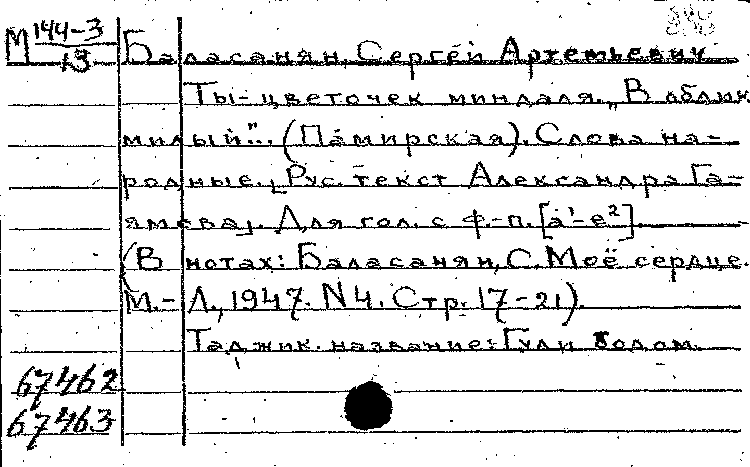 М 144-3
13
Баласанян, Сергей Артемьевич
Ты-цветочек миндаля. „В яблик
милый"... (Памирская). Слова на-
родные. [Рус. текст Александра Га-
ямева]. Для гол. с ф.-п. [a¹-e²].
(В нотах: Баласанян, С. Моё сердце.
М.-Л., 1947. N4. Стр. 17-21).
Таджик. название: Гули бодом.
67462
67463